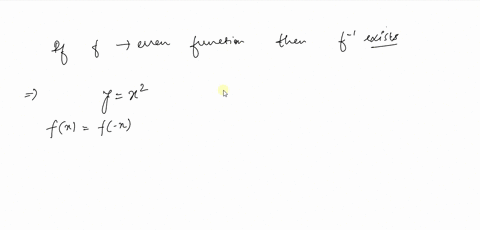 If f → even function then f⁻¹ exists
⇒ y = x²
f(x) = f(-x)